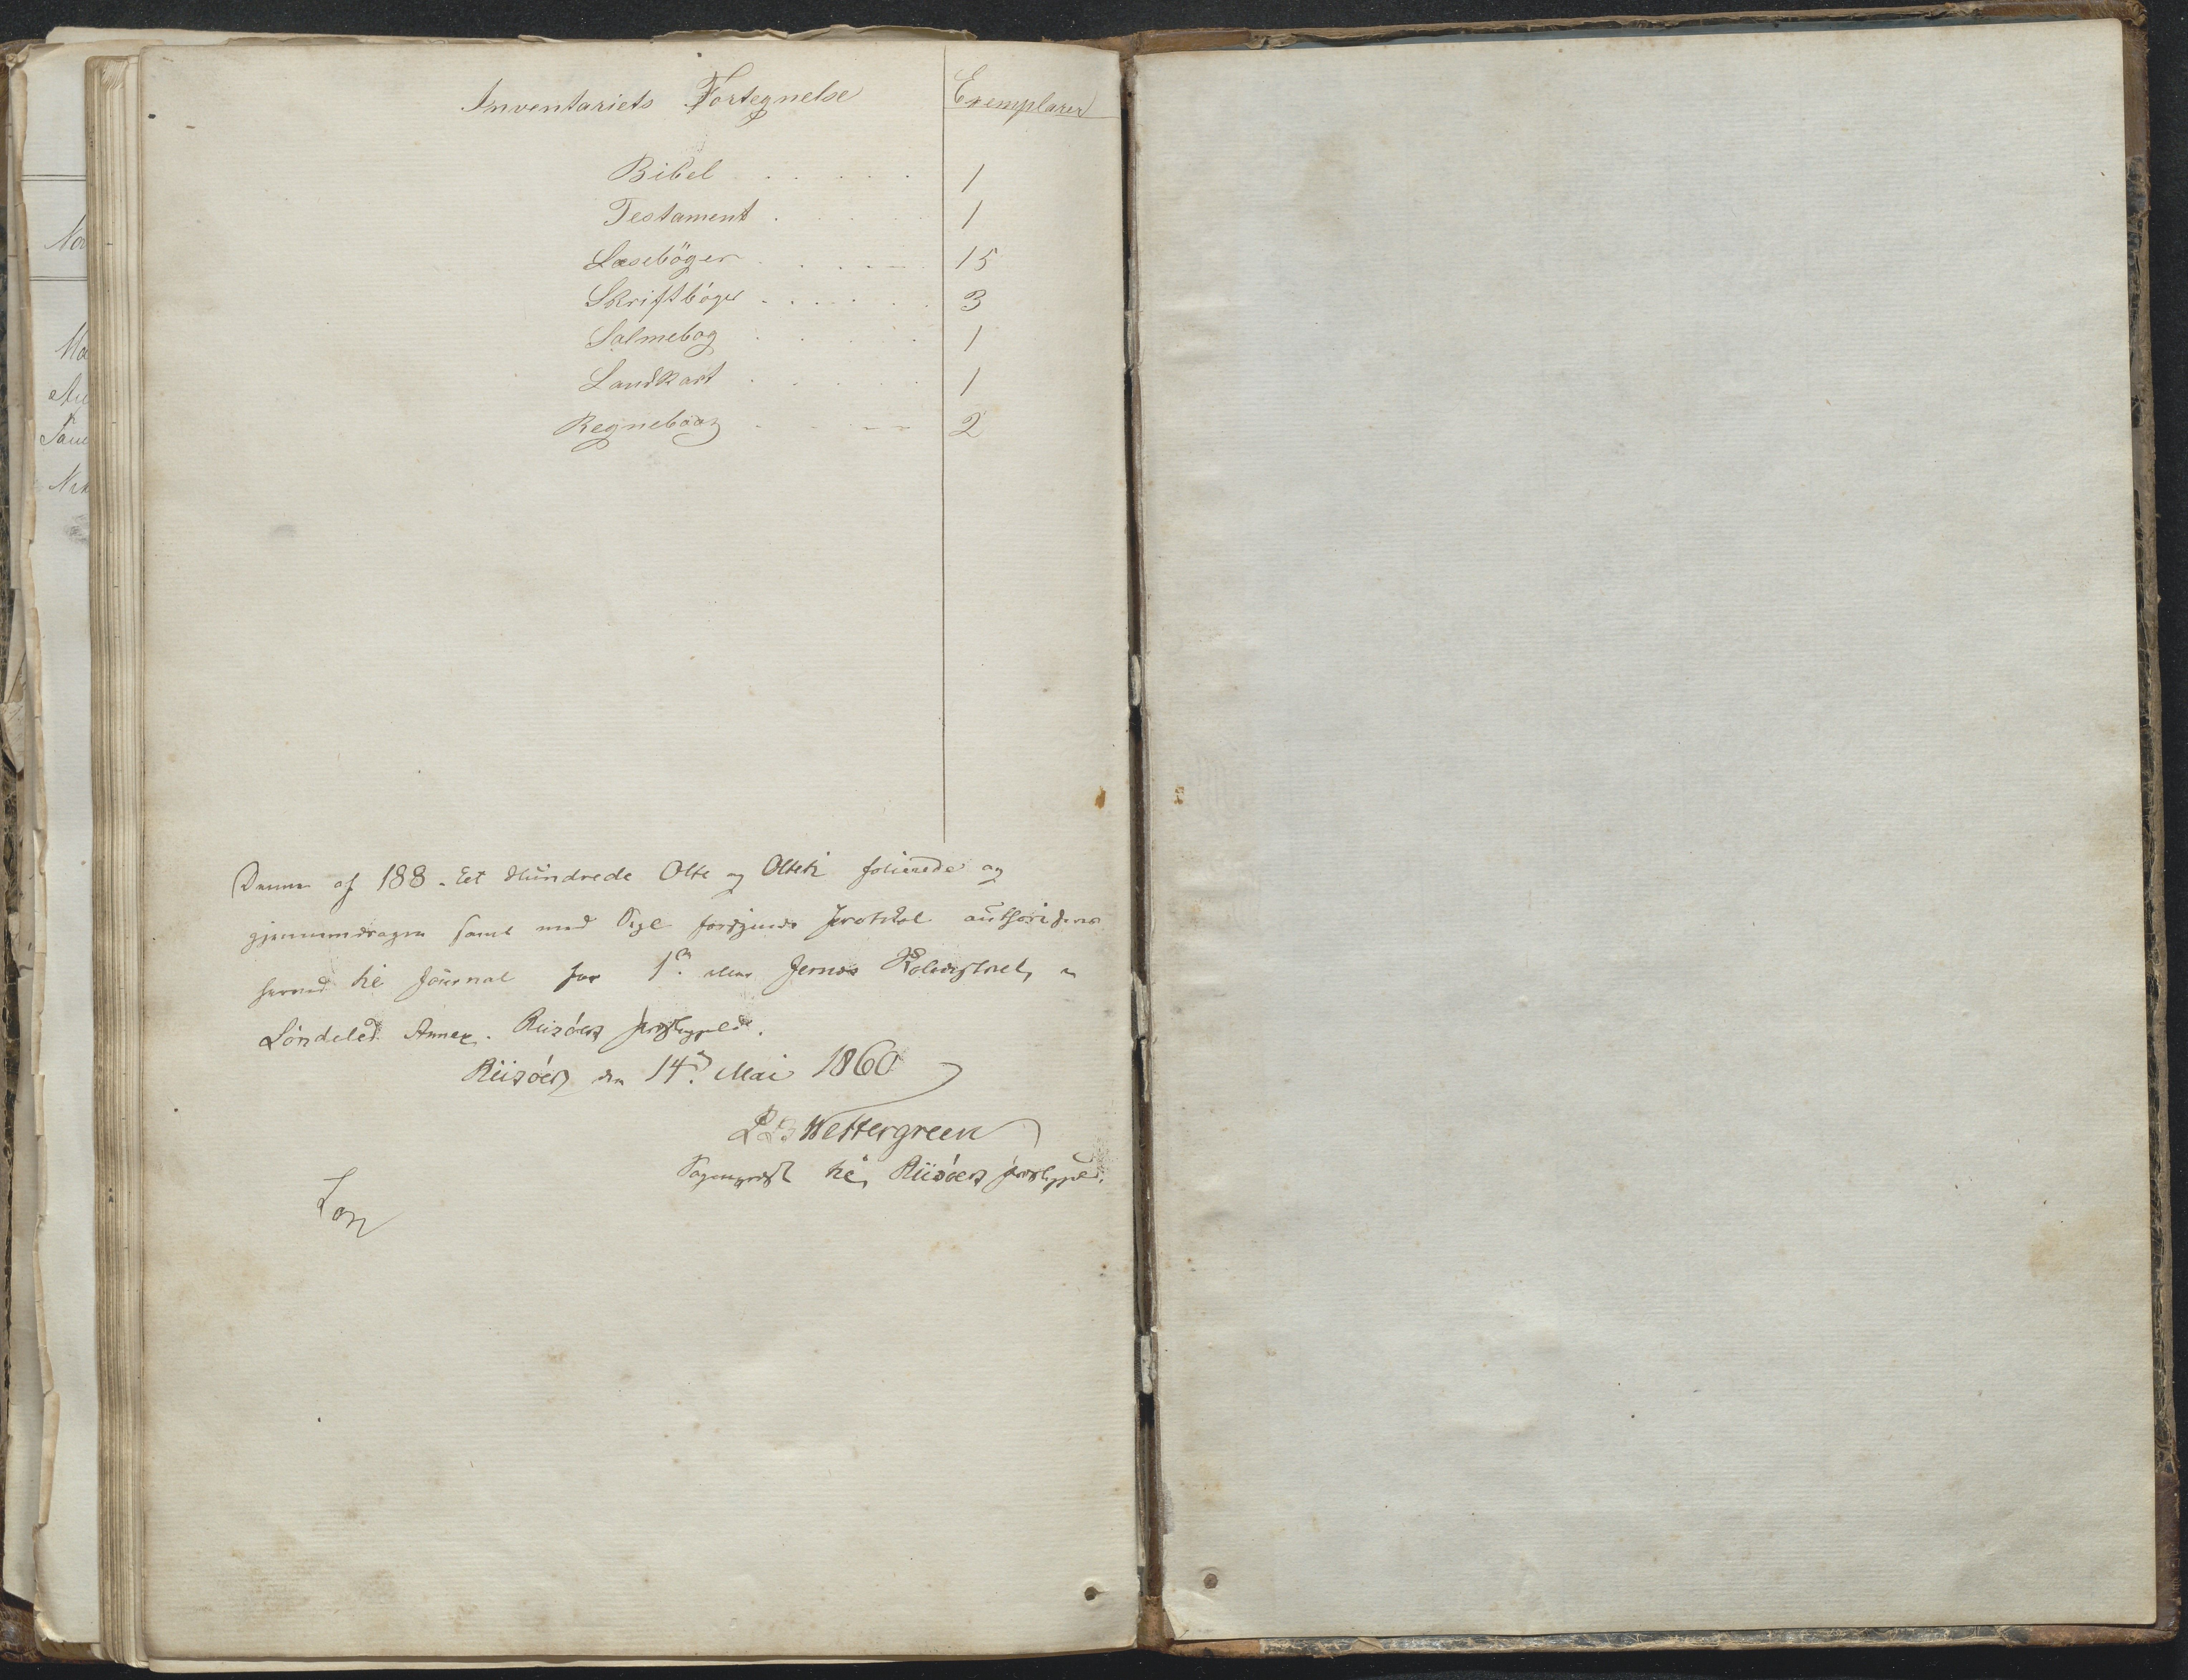 Inventariets Fortegnelse Exemplarer
Bibel . . . . . . 1
Testament . . . . 1
Læsebøger . . . . . 15
Skriftbøger . . . . . . 3
Salmebog . . . . . 1
Landkart . . . . . 1
Regnebog . . . . . 2
Denne af 188 - Et Hundrede Otte og Otteti folierede og
gjennemdragen samt med Segl forsynede Protokol authoriseres
herved til Journal for 1ste
Søndeled Annex. Riisøers Præstegjeld.
Riisøer den 14de Mai 1860
Wettergreen
Sogneprest til Riisøers Præstegjeld.
Nov
Ma
Au